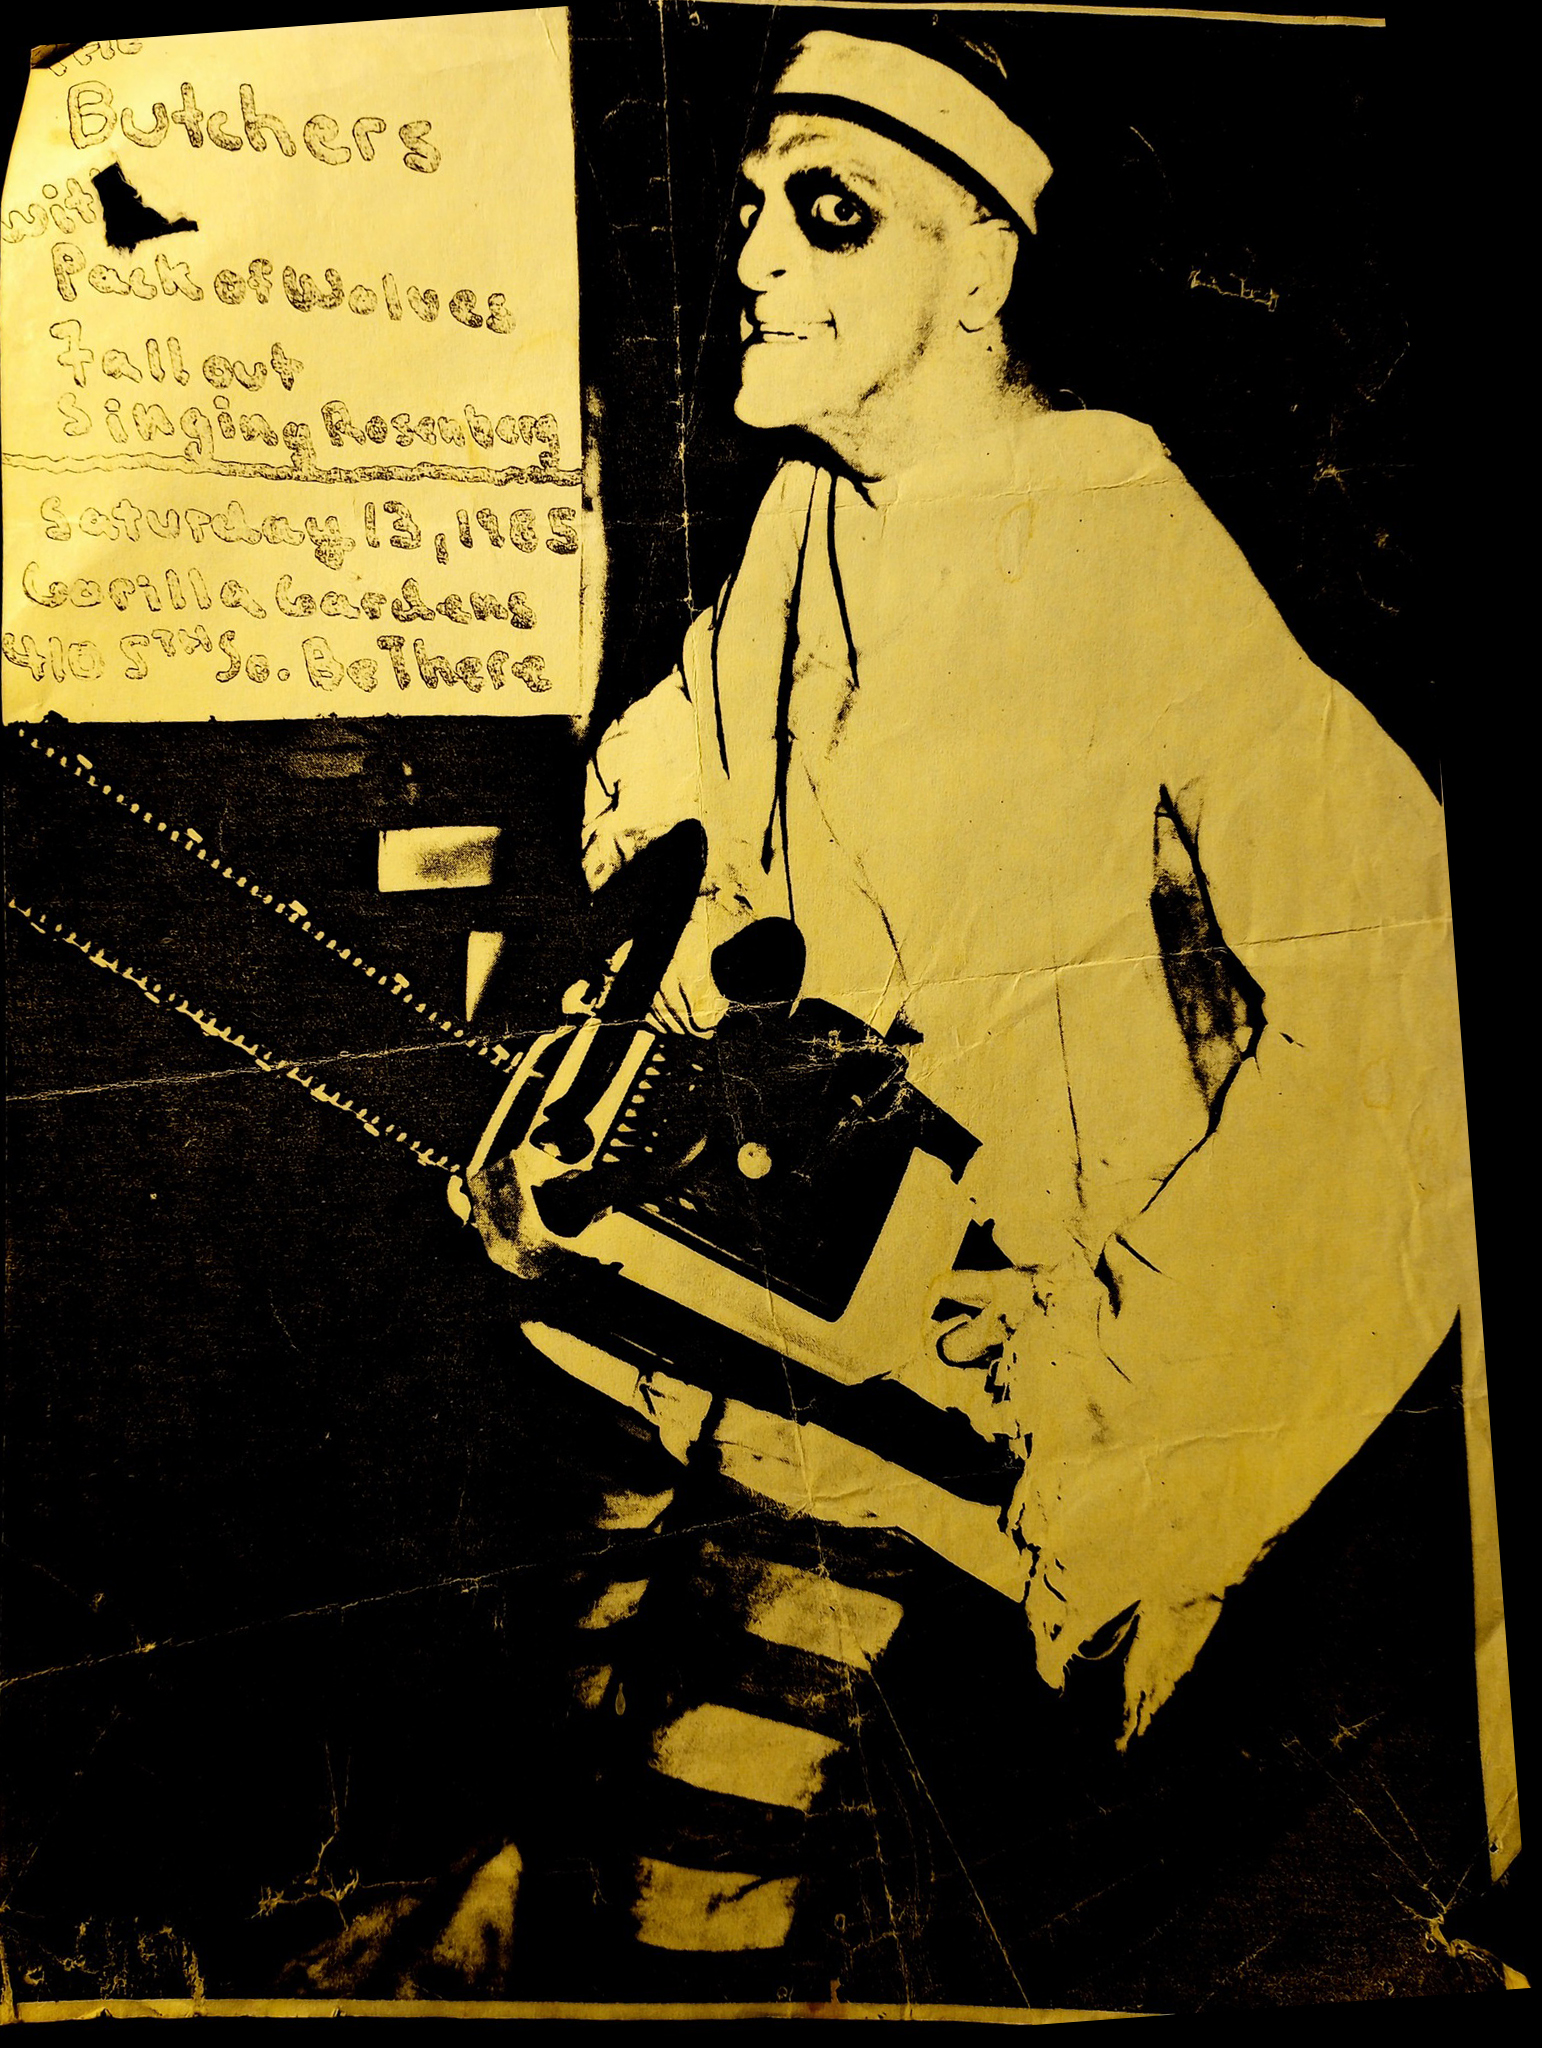 The
Butchers
with
Pack of Wolves
Fallout
Singing Rosenberg
Saturday 13, 1985
Gorilla Gardens
410 5TH So. Be There